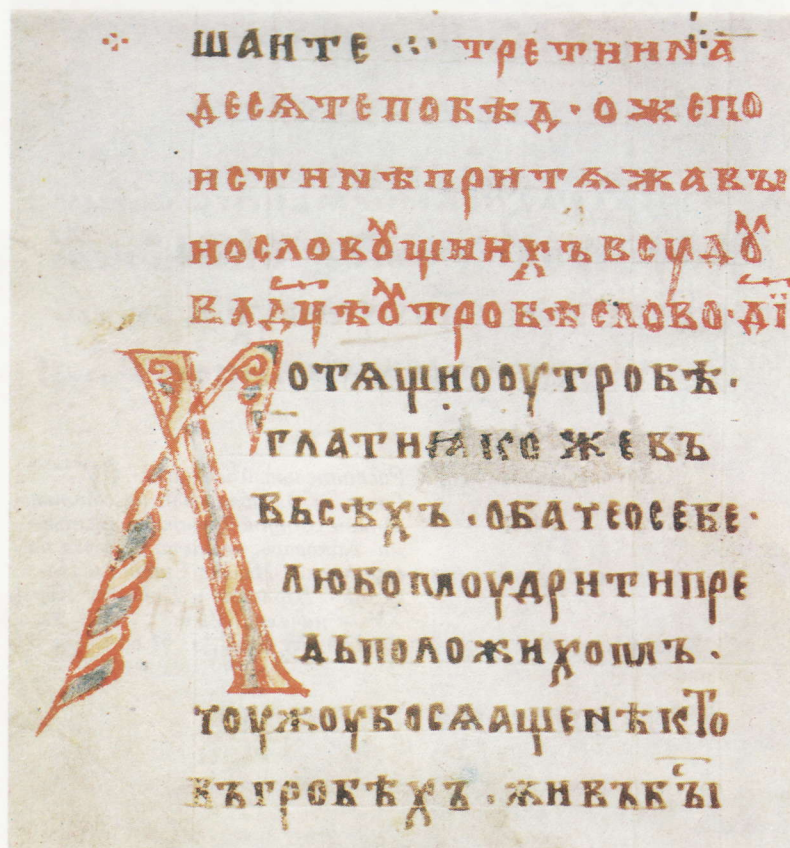 шанте ·:· третиина
десѧтепобѣд·ожепо
истинѣпритѧжавы
нословꙋщиихъвсꙋдꙋ
влдцѣꙋтробѣслово·ді
Хотѧщиооутробѣ·
глатиꙗкожевъ
вьсѣхъ·обатеосебе·
любомоудритипре
дьположихомъ·
тоужоубосѧащенѣкто
въгробѣхъ·живъбы